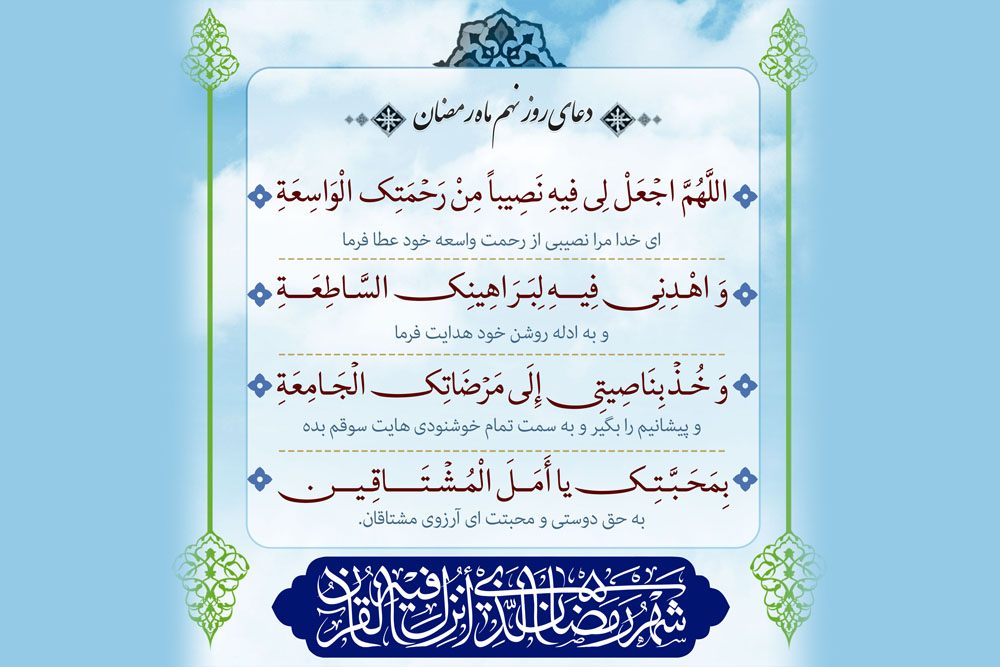 دعای روز نهم ماه رمضان
اللَّهُمَّ اجْعَلْ لِی فِیهِ نَصِیباً مِنْ رَحْمَتِک الْوَاسِعَةِ
ای خدا مرا نصیبی از رحمت واسعه خود عطا فرما
وَ اهْدِنِی فِیهِ لِبَرَاهِینِک السَّاطِعَةِ
و به ادله روشن خود هدایت فرما
وَ خُذْ بِنَاصِیتِی إِلَی مَرْضَاتِک الْجَامِعَةِ
و پیشانیم را بگیر و به سمت تمام خوشنودی هایت سوقم بده
بِمَحَبَّتِک یا أَمَلَ الْمُشْتَاقِین
به حق دوستی و محبتت ای آرزوی مشتاقان.
شَهْرُ رَمَضَانَ الَّذِي أُنْزِلَ فِيهِ الْقُرْآنُ